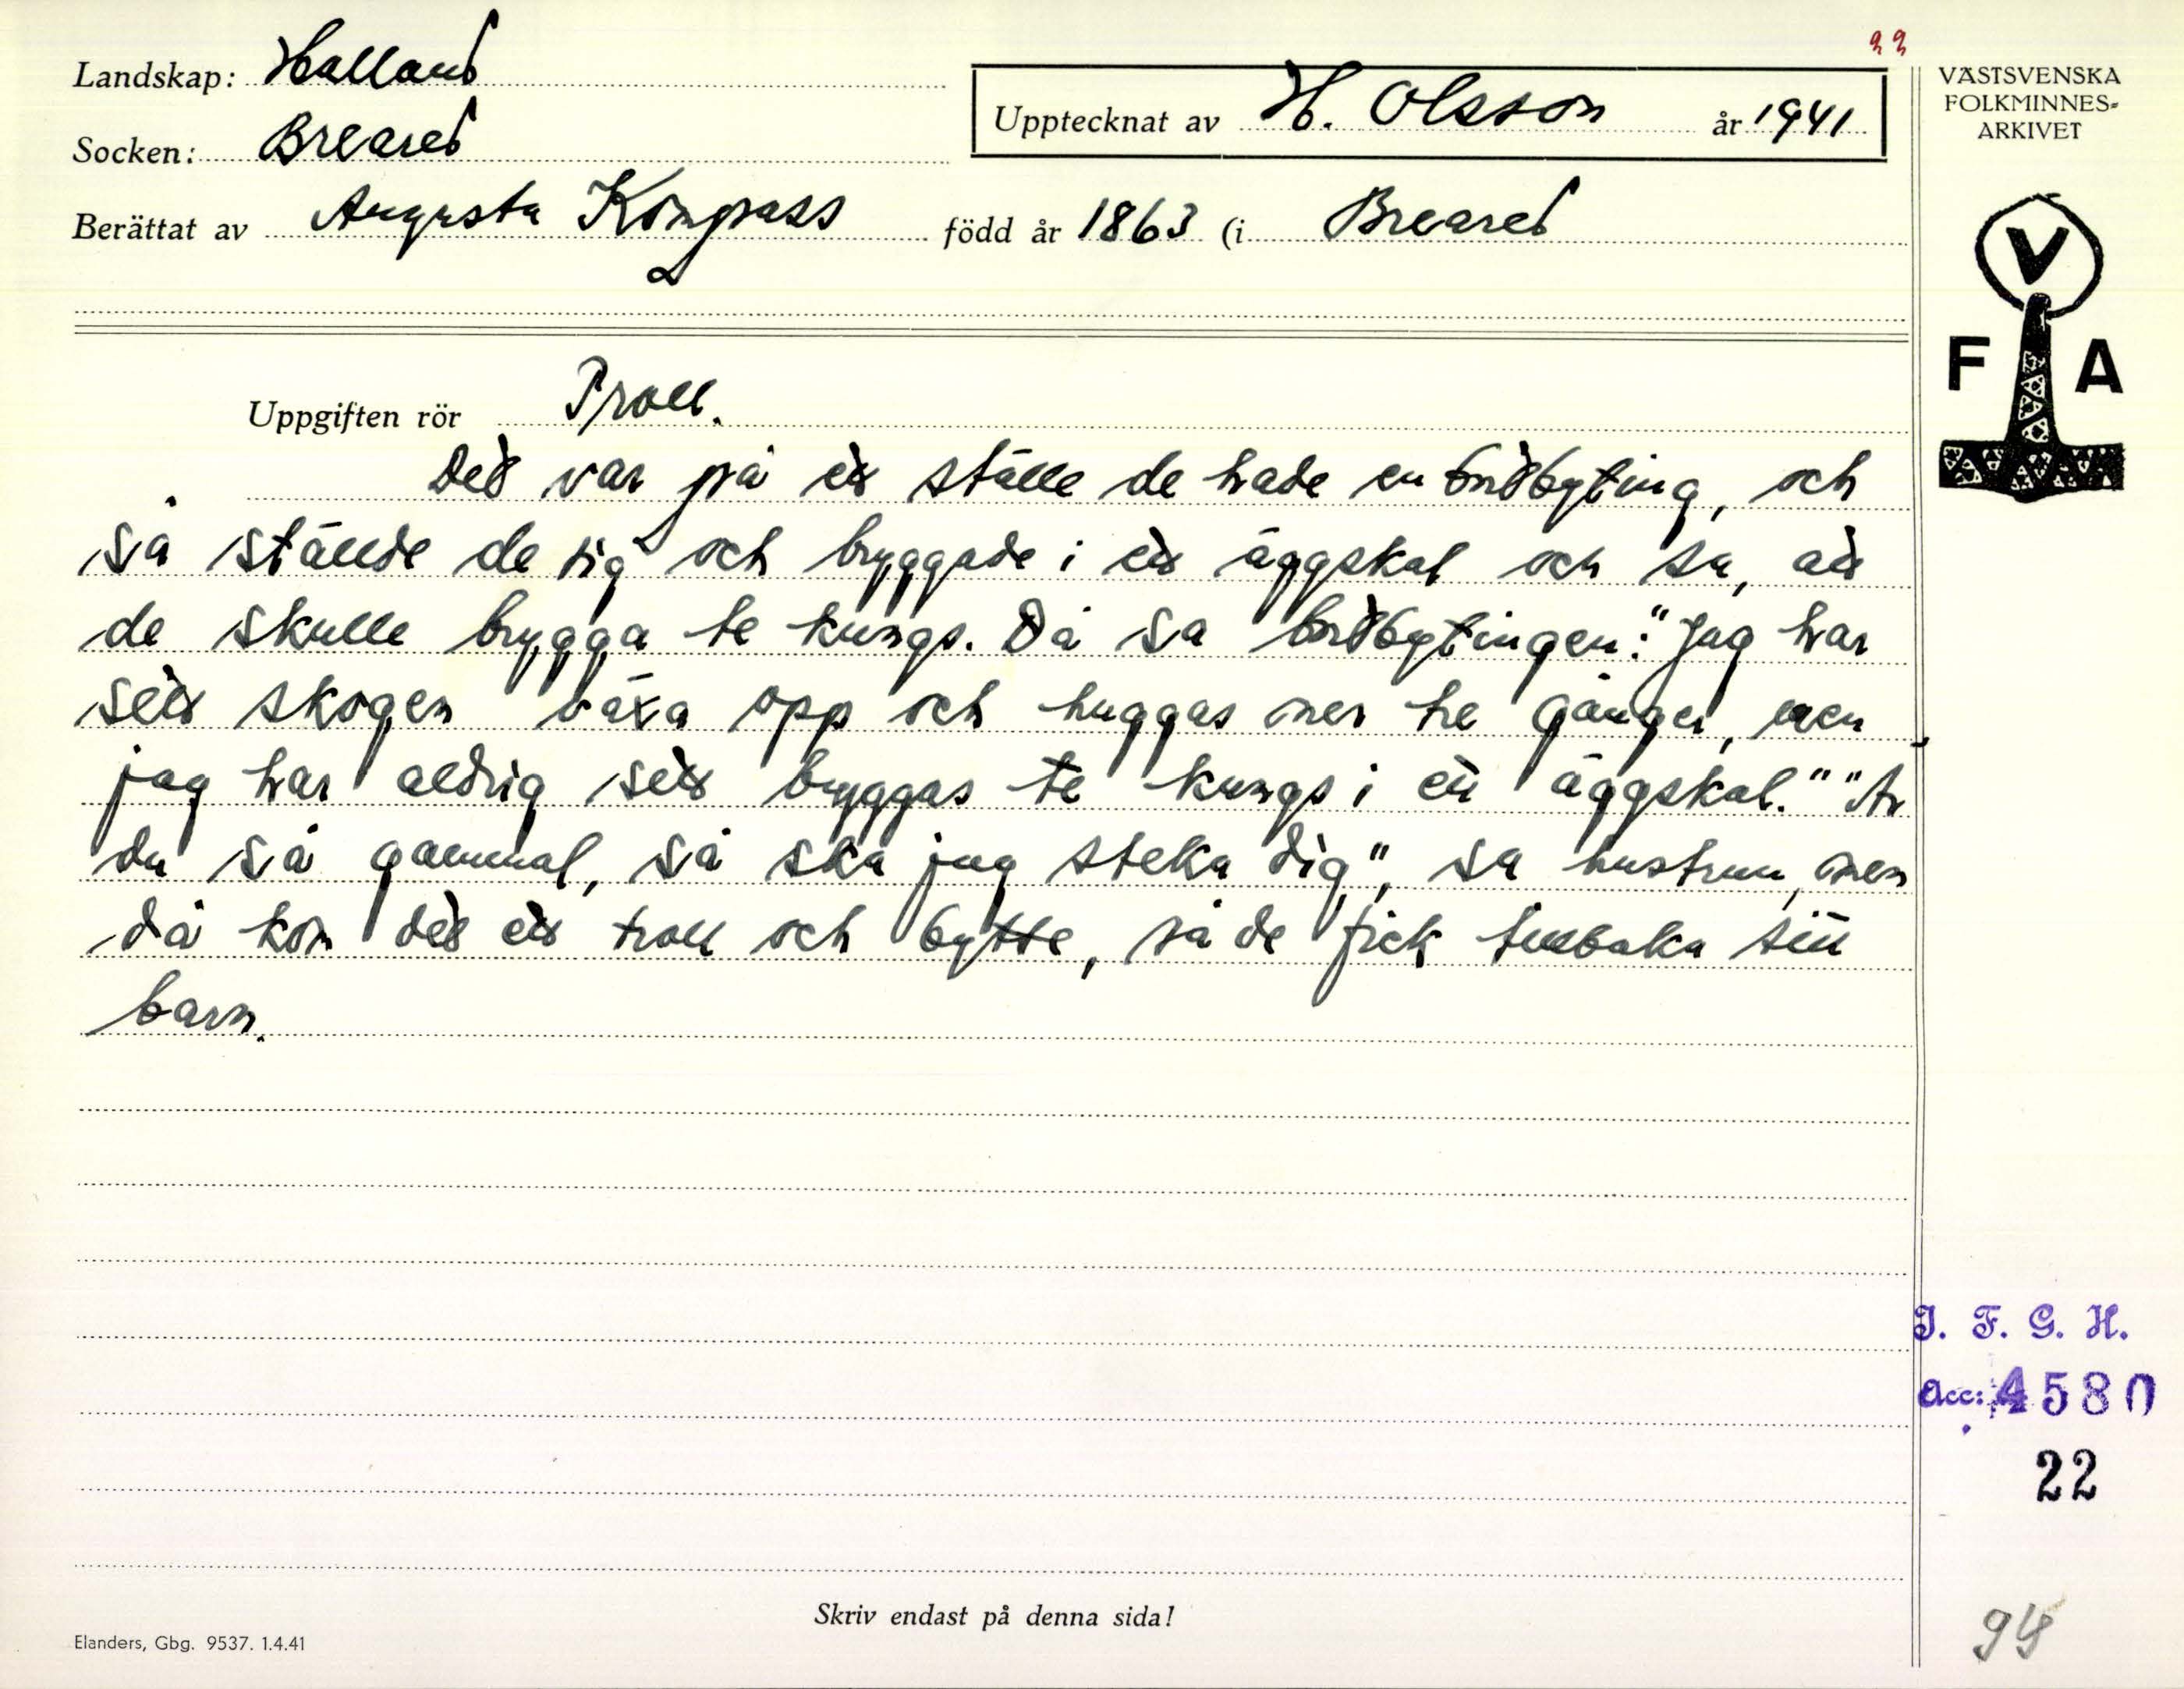 22
Landskap: Halland
Socken: Breared
Upptecknat av H. Olsson år 1941
Berättat av Augusta Kungpass född år 1863 (i Breared
VÄSTSVENSKA
FOLKMINNES-
ARKIVET
V
F A
Uppgiften rör Troll.
Det var på ett ställe de hade en bortbyting, och
så ställde de sig och bryggade i ett äggskal och sa, att
de skulle brygga te kungs. Då sa bortbytingen: "Jag har
sett skogen växa opp och huggas ner tre gånger, men
jag har aldrig sett bryggas te kungs i ett äggskal." "Är
du så gammal, så ska jag steka dig", sa hustrun, men
då kom det ett troll och bytte, så de fick tillbaka sitt
barn.
I. F. G. H.
Acc: 4580
22
Skriv endast på denna sida!
Elanders, Gbg. 9537. 1.4.41